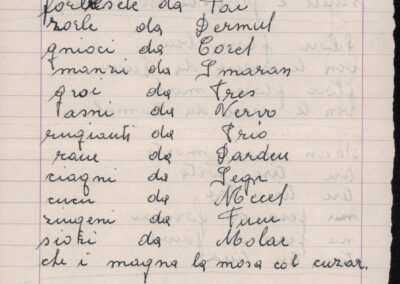 da Tai
zoele da Dermul
gnioci da Coret
manzi da Smaran
groi da Tres
asni da Vervo
rugianti da Prio
rane da Dardeu
ciagni da Segn
cucu da Mecel
zingeni da Tueu
siori da Molar
che i magna la mosa col cuzar.